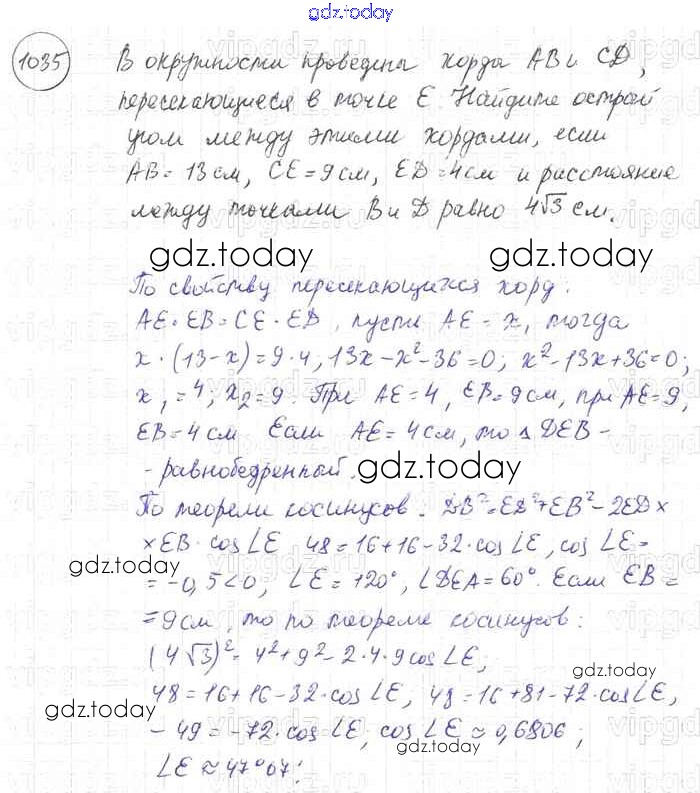 gdz.today
1035 В окружности проведены хорды AB и CD,
пересекающиеся в точке E. Найдите острый
угол между этими хордами, если
AB = 13 см, CE = 9 см, ED = 4 см и расстояние
между точками B и D равно 4√3 см.
gdz.today gdz.today
По свойству пересекающихся хорд:
AE · EB = CE · ED, пусть AE = x, тогда
x · (13 - x) = 9 · 4; 13x - x² - 36 = 0; x² - 13x + 36 = 0;
x₁ = 4; x₂ = 9. При AE = 4, EB = 9 см, при AE = 9,
EB = 4 см. Если AE = 4 см, то △ DEB -
- равнобедренный.
gdz.today
По теореме косинусов: DB² = ED² + EB² - 2ED ×
× EB · cos ∠E 48 = 16 + 16 - 32 · cos ∠E, cos ∠E =
gdz.today
= -0,5 < 0; ∠E = 120°, ∠DEA = 60°. Если EB =
= 9 см, то по теореме косинусов:
(4√3)² = 4² + 9² - 2 · 4 · 9 cos ∠E;
gdz.today
48 = 16 + 16 - 32 · cos ∠E; 48 = 16 + 81 - 72 · cos ∠E,
gdz.today
- 49 = -72 · cos ∠E; cos ∠E ≈ 0,6806;
gdz.today
∠E ≈ 47°07'.